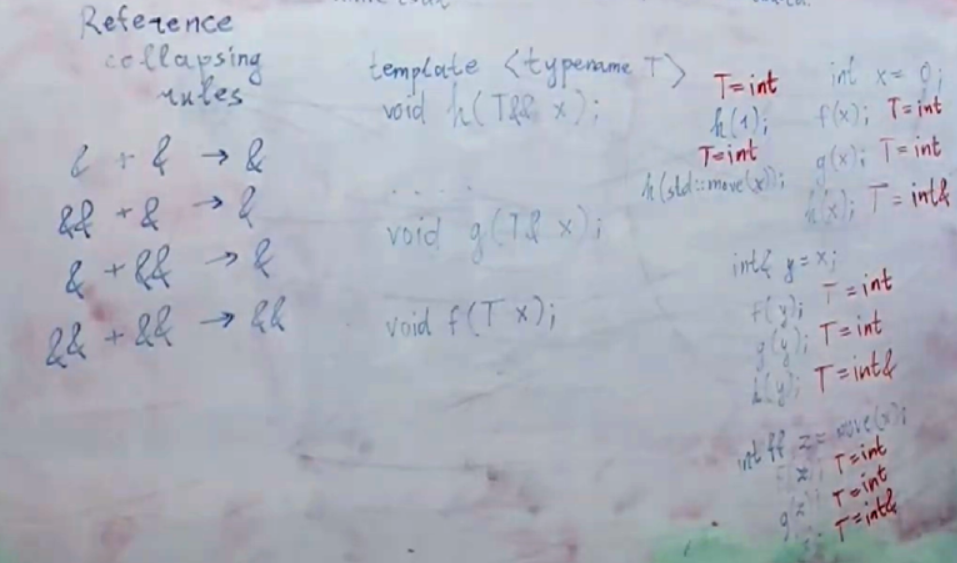 Reference
collapsing
rules
& + & → &
&& + & → &
& + && → &
&& + && → &&
template <typename T>
void h(T&& x);
. . . . .
void g(T& x);
void f(T x);
T=int
h(1);
T=int
h(std::move(x));
int x = 0;
f(x); T=int
g(x); T=int
h(x); T=int&
int& y=x;
f(y); T=int
g(y); T=int
h(y); T=int&
int && z = move(x);
f(z); T=int
g(z); T=int
T=int&